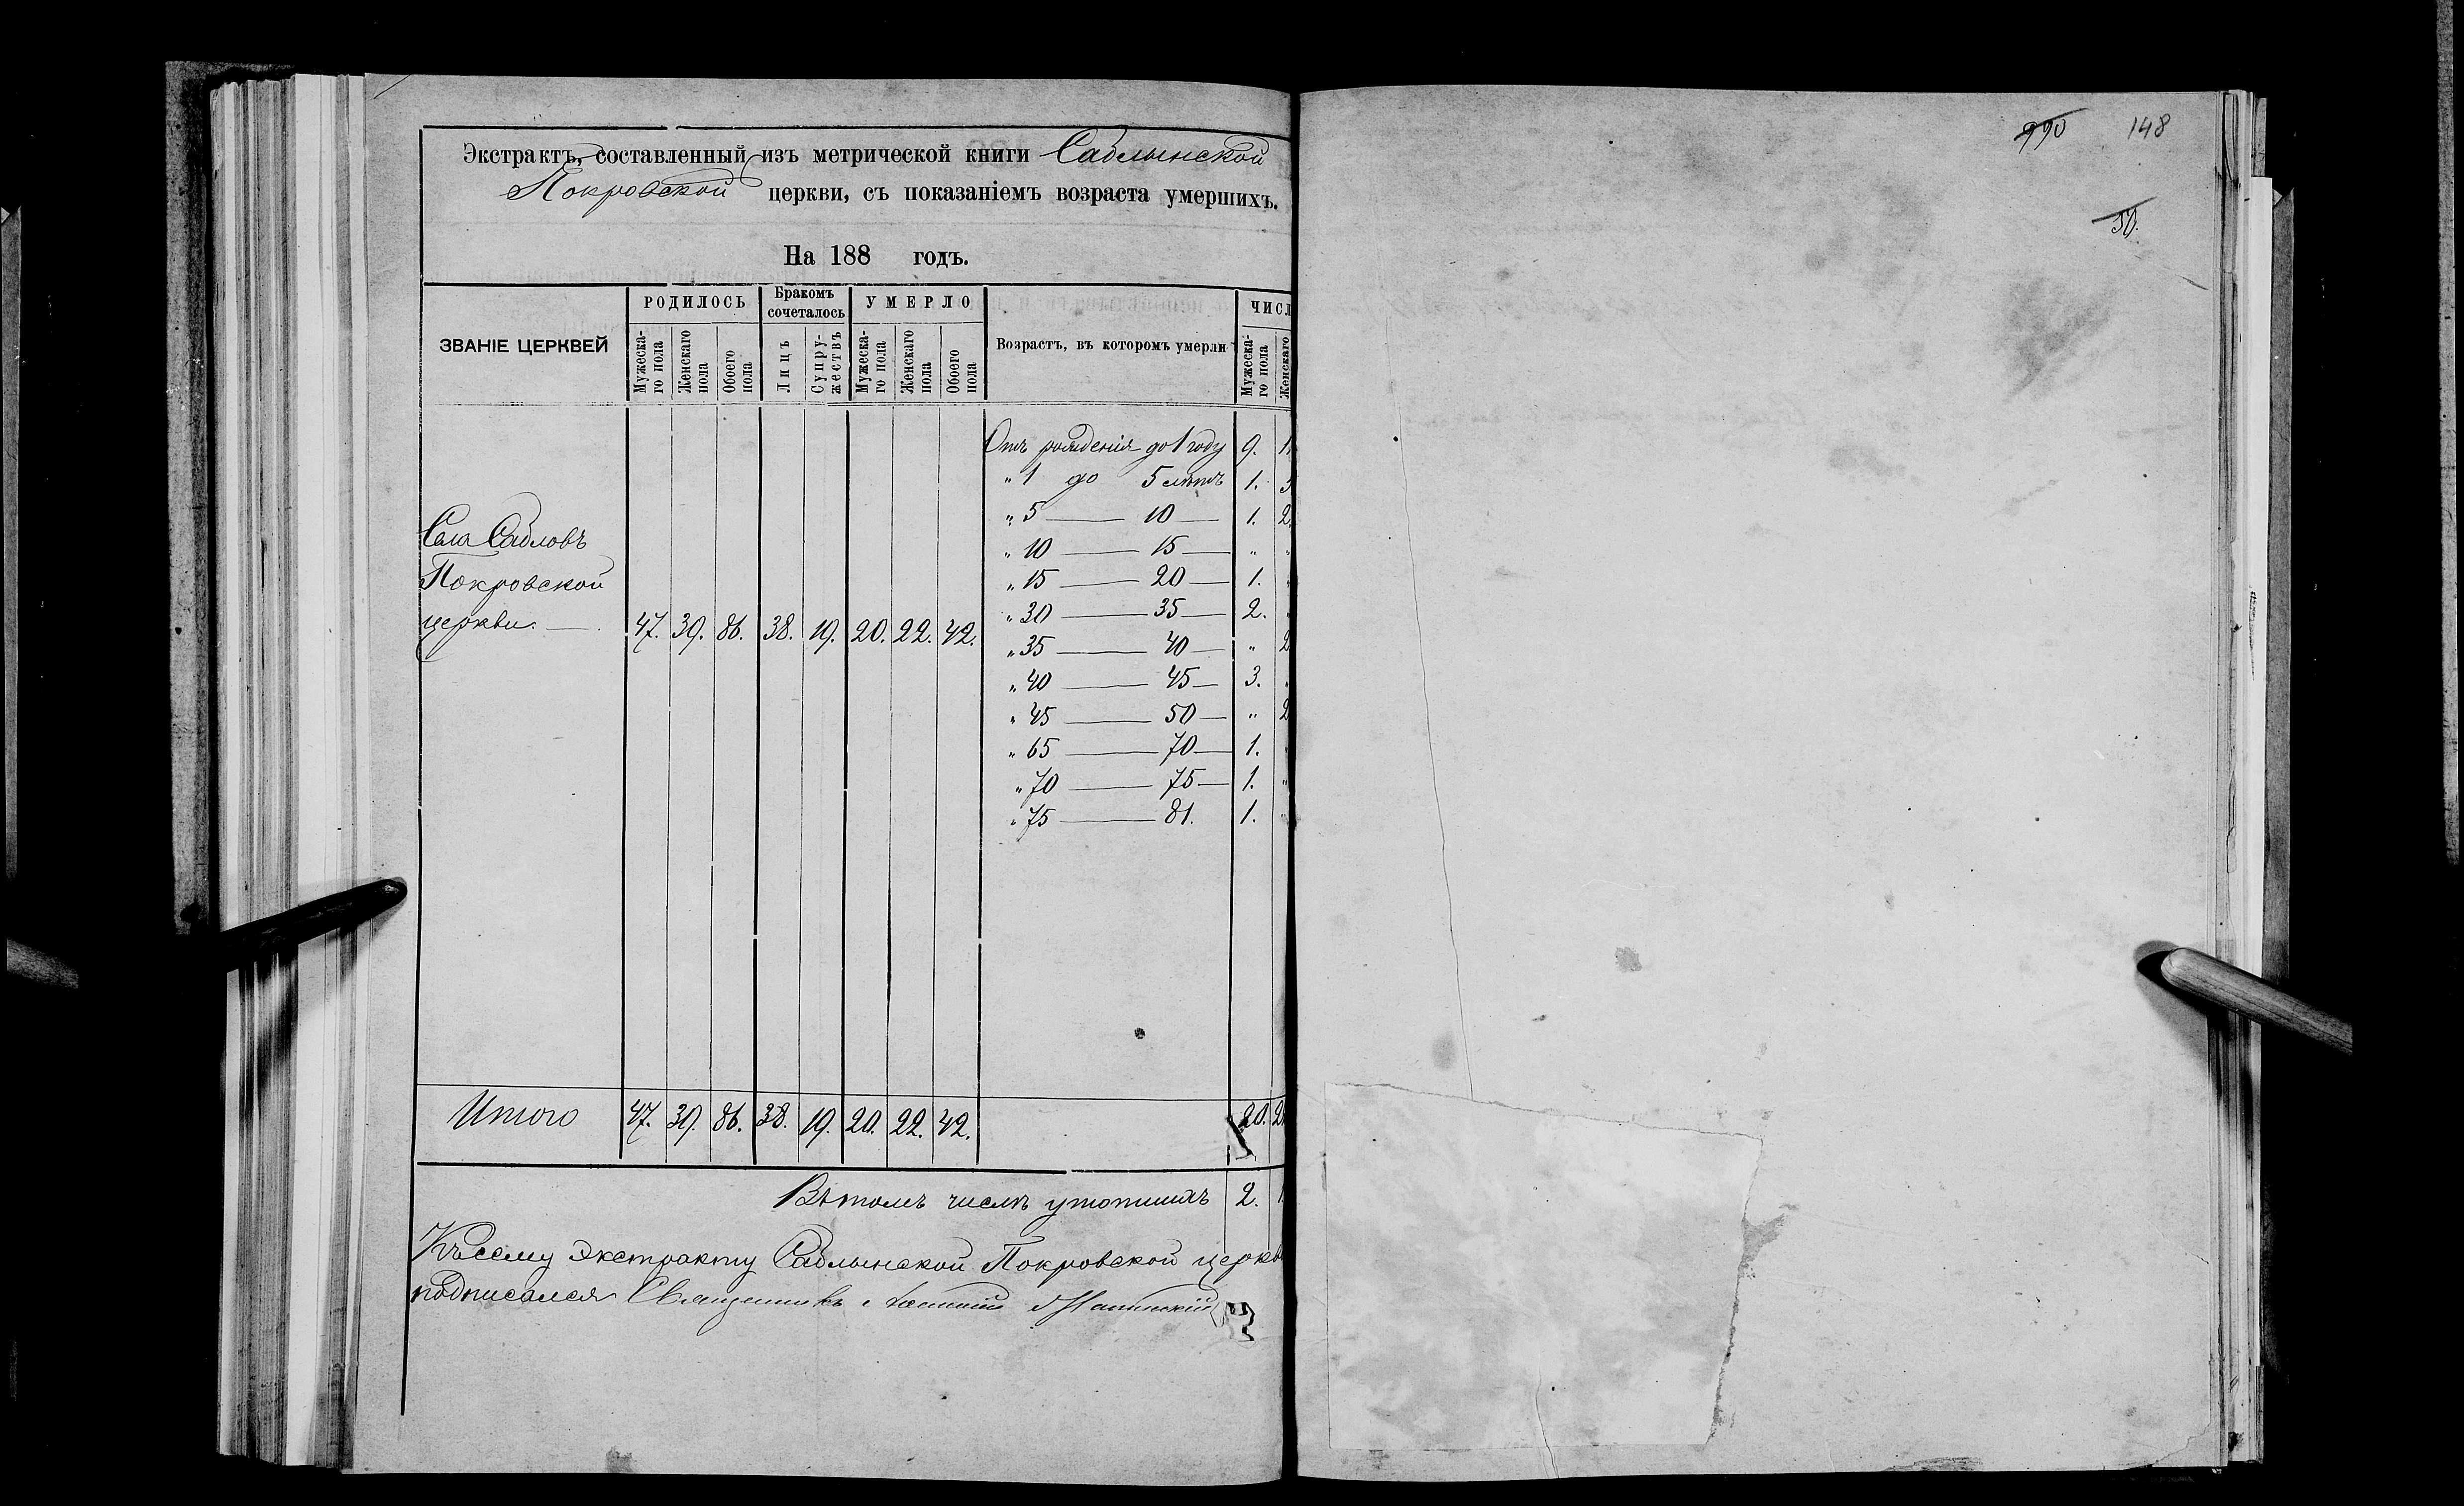 Экстрактъ, составленный изъ метрической книги Саблынской
Покровской церкви, съ показаніемъ возраста умершихъ.
На 188 годъ.
ЗВАНІЕ ЦЕРКВЕЙ
РОДИЛОСЬ
Мужеска-
го пола
Женскаго
пола
Обоего
пола
Бракомъ
сочеталось
Лицъ
Супру-
жествъ
УМЕРЛО
Мужеска-
го пола
Женскаго
пола
Обоего
пола
Возрастъ, въ которомъ умерли
ЧИСЛ
Мужеска-
го пола
Женскаго
Отъ рожденія до 1 году 9.
" 1 до 5 лѣтъ 1. 3
" 5 — 10 — 1. 2.
" 10 — 15 — " "
" 15 — 20 — 1.
" 30 — 35 — 2.
" 35 — 40 — " 2
" 40 — 45 — 3. "
" 45 — 50 — " 2
" 65 — 70 — 1.
" 70 — 75 — 1. "
" 75 — 81. 1.
Села Сабловъ
Покровской
церкви. — 47. 39. 86. 38. 19. 20. 22. 42.
Итого 47. 39. 86. 38. 19. 20. 22. 42. 20. 2
Въ томъ числѣ утопшихъ 2. 1
Къ сему экстракту Саблынской Покровской церкв
подписался Священникъ
990 148
50.